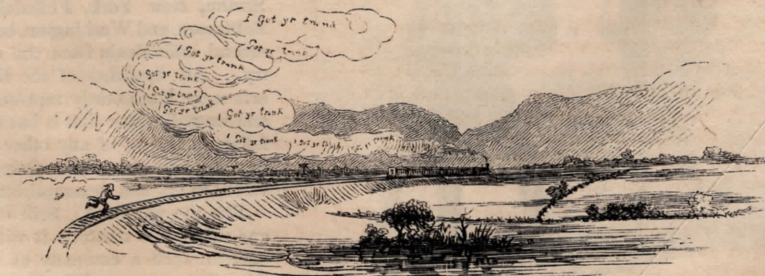 I Got yr trunk
Got yr trunk
I Got yr trunk
I Got yr trunk
I Got yr trunk
I Got yr trunk
I Got yr trunk
I Got yr trunk
I Got yr trunk